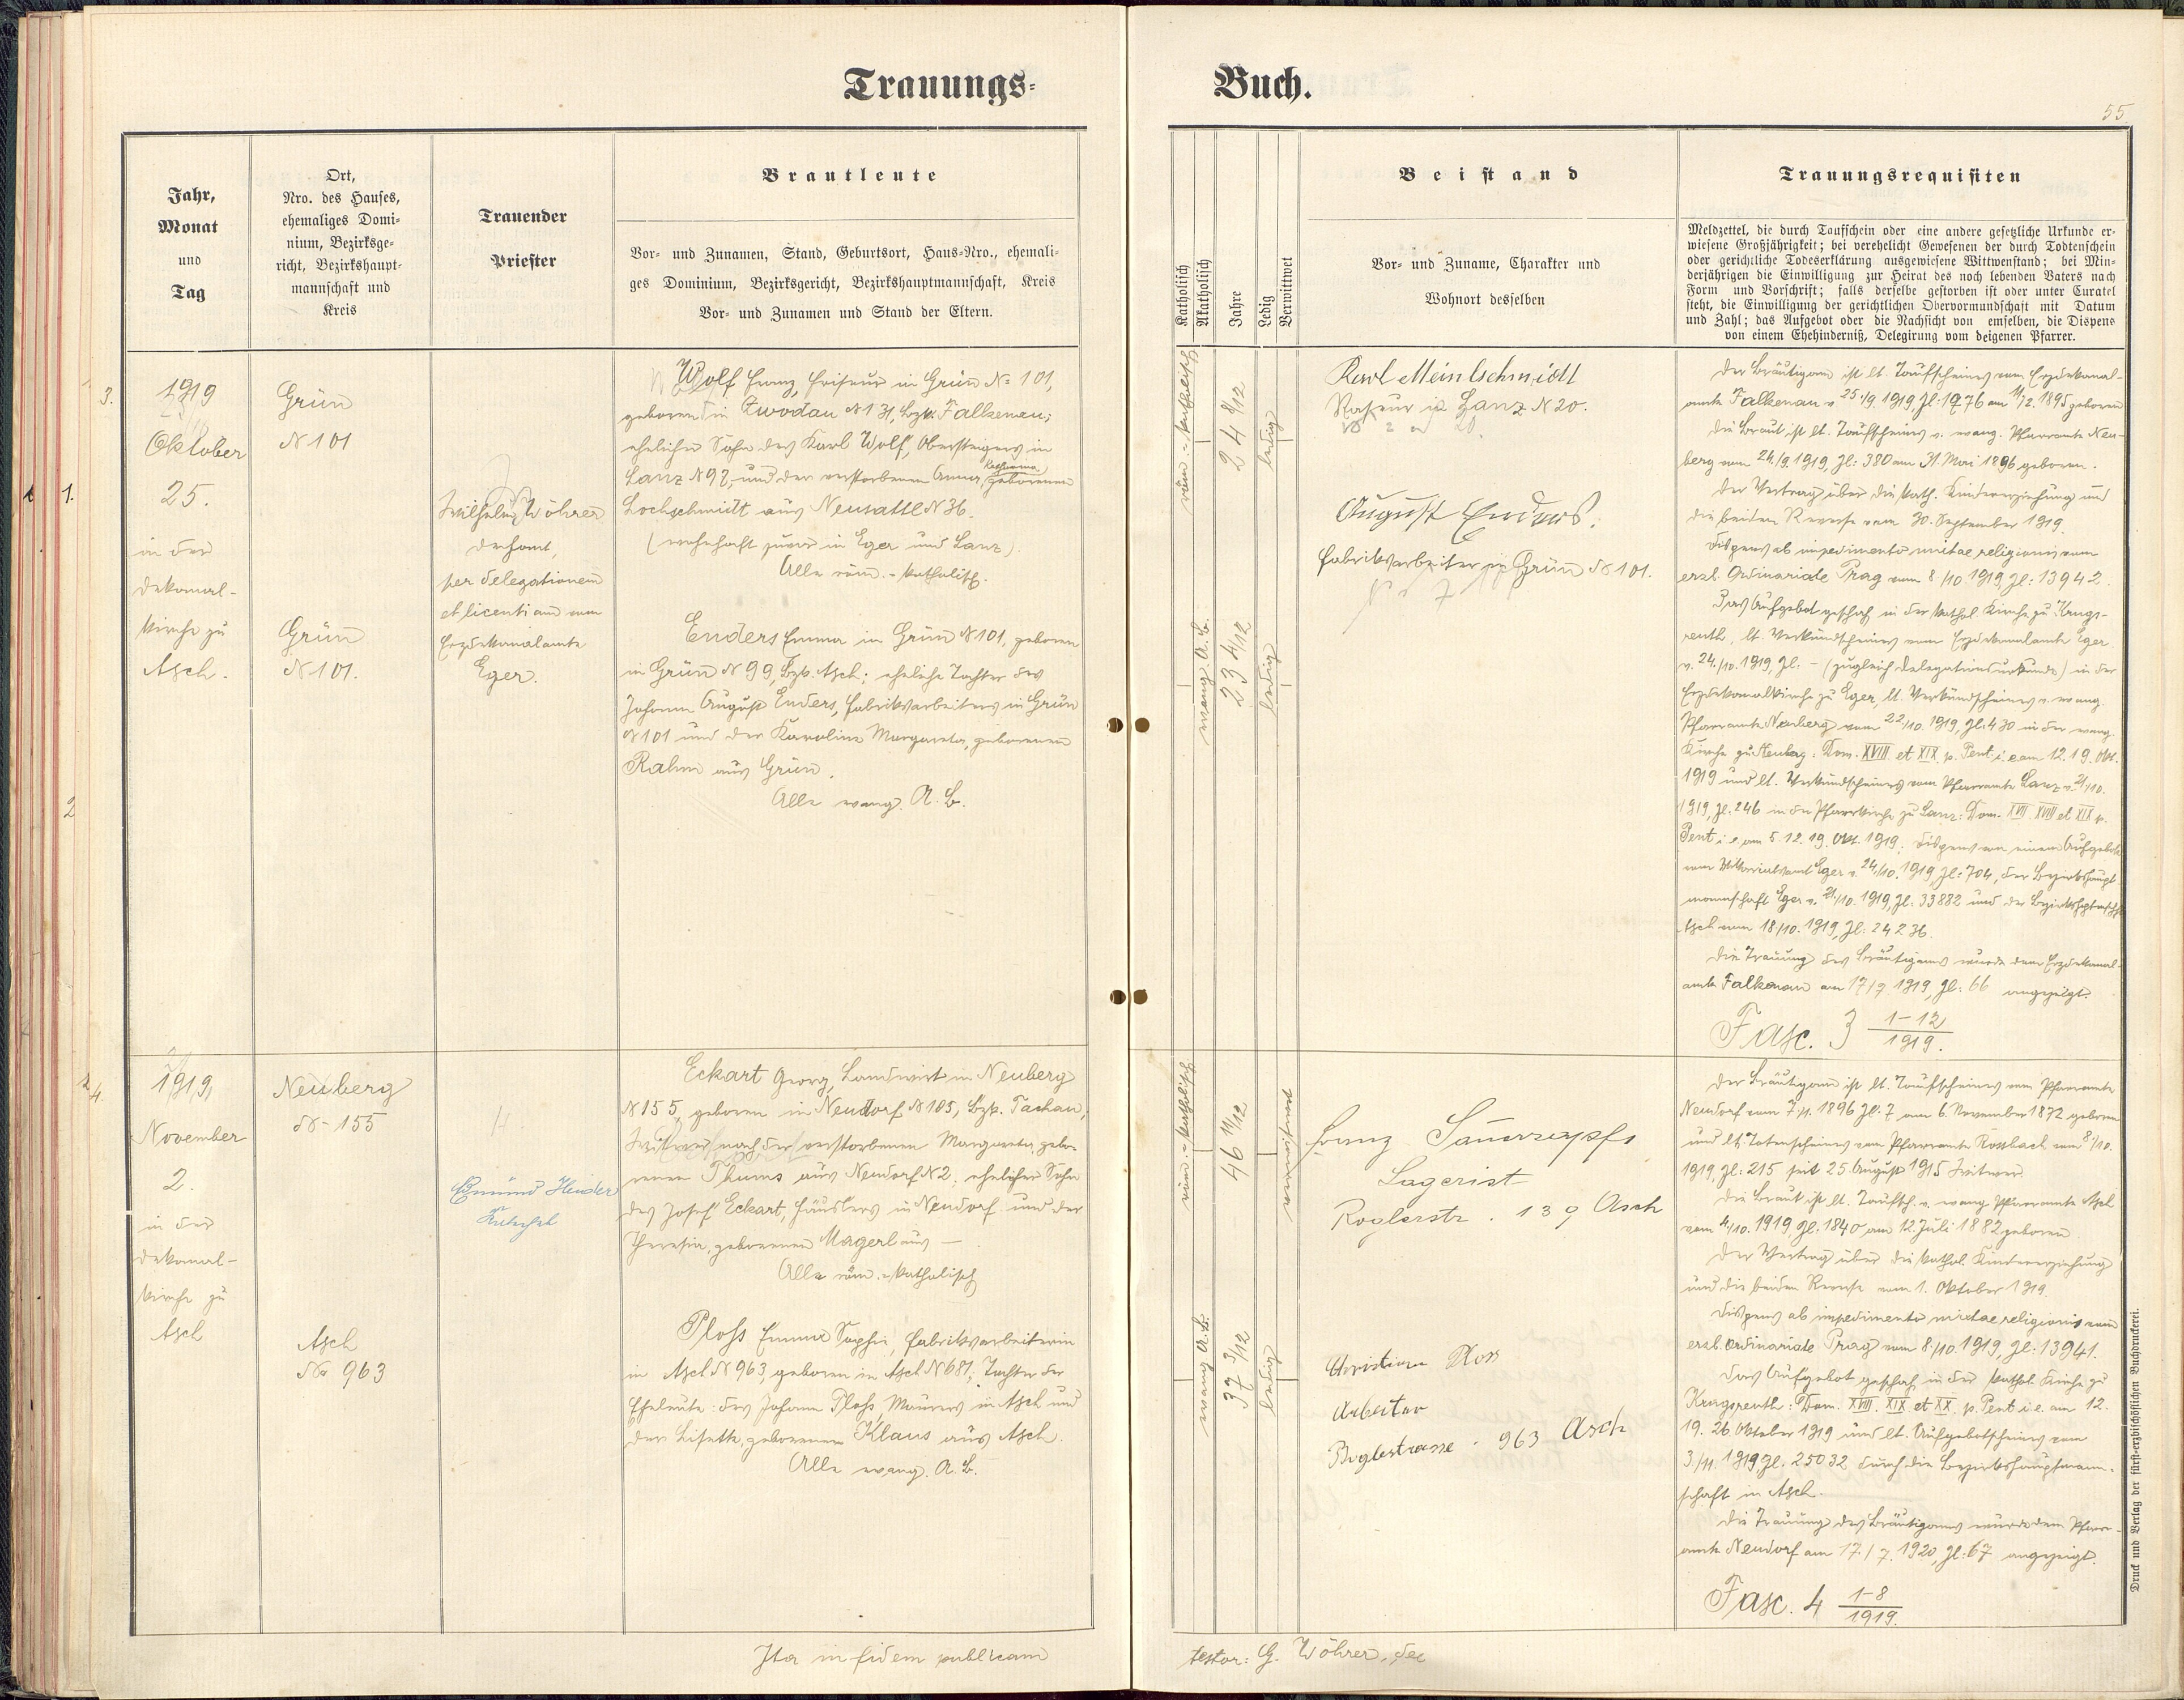 Trauungs-
Buch.
55.
Jahr,
Monat
und
Tag
Ort,
Nro. des Hauses,
ehemaliges Domi-
nium, Bezirksge-
richt, Bezirkshaupt-
mannschaft und
Kreis
Trauender
Priester
Brautleute
Vor- und Zunamen, Stand, Geburtsort, Haus-Nro., ehemali-
ges Dominium, Bezirksgericht, Bezirkshauptmannschaft, Kreis
Vor- und Zunamen und Stand der Eltern.
Katholisch
Akatholisch
Jahre
Ledig
Verwittwet
Beistand
Vor- und Zuname, Charakter und
Wohnort desselben
Trauungsrequisiten
Meldzettel, die durch Taufschein oder eine andere gesetzliche Urkunde er-
wiesene Großjährigkeit; bei verehelicht Gewesenen der durch Todtenschein
oder gerichtliche Todeserklärung ausgewiesene Wittwenstand; bei Min-
derjährigen die Einwilligung zur Heirat des noch lebenden Vaters nach
Form und Vorschrift; falls derselbe gestorben ist oder unter Curatel
steht, die Einwilligung der gerichtlichen Obervormundschaft mit Datum
und Zahl; das Aufgebot oder die Nachsicht von emselben, die Dispens
von einem Ehehinderniß, Delegirung vom deigenen Pfarrer.
3.
1919
Oktober
1.
25.
in der
Dekanal-
kirche zu
Asch.
2
Grün
N 101
Grün
N 101.
Wilhelm Wöhrer
Dechant,
per delegationem
et licentiam vom
Erzdekanalamte
Eger.
Wolf Franz, Friseur in Grün N= 101,
geboren in Zwodau N 131, Bzk. Falkenau;
ehelicher Sohn des Karl Wolf, Obersteigers in
Lanz N 97, und der verstorbenen Anna, Katharina geborenen
Lochschmidt aus Neusattl N 36.
(wohnhaft zuvor in Eger und Lanz).
Alle röm.-katholisch.
Enders Emma in Grün N 101, geboren
in Grün N 99, Bzk. Asch; eheliche Tochter des
Johann August Enders, Fabriksarbeiters in Grün
N 101 und der Karolina Margareta, geborenen
Rahm aus Grün.
Alle evang. A. B.
röm.-katholisch
24 8/12
ledig
evang. A. B.
23 4/12
ledig
Karl Meinlschmidt
Raseur in Lanz N 20.
August Enders.
Fabriksarbeiter in Grün N 101.
Der Bräutigam ist lt. Taufscheines vom Erzdekanal-
amte Falkenau v. 25./9. 1919, Zl: 1976 am 11/2. 1895 geboren
Die Braut ist lt. Taufscheines v. evang. Pfarramte Neu-
berg vom 24./9. 1919, Zl: 380 am 31. Mai 1896 geboren.
Der Vertrag über die kath. Kindererziehung und
die beiden Reverse vom 30. September 1919.
Dispens ab impedimento mixtae religionis vom
erzb. Ordinariate Prag vom 8/10 1919, Zl: 13942.
Das Aufgebot geschah in der kathol. Kirche zu Krugs-
reuth, lt. Verkündscheines vom Erzdekanalamte Eger
v. 24./10. 1919, Zl: - (zugleich Delegationsurkunde) in der
Erzdekanalkirche zu Eger, lt. Verkündscheines v. evang.
Pfarramte Neuberg vom 22./10. 1919, Zl: 430 in der evang.
Kirche zu Neuberg: Dom. XVIII et XIX p. Pent. i. e. am 12. 19. Okt.
1919 und lt. Verkündscheines vom Pfarramte Lanz v. 21/10.
1919, Zl. 246 in der Pfarrkirche zu Lanz: Dom. XVII XVIII et XIX p.
Pent. i. e. am 5. 12. 19. Okt. 1919; Dispens von einem Aufgebote
vom Vikariatsamt Eger v. 24./10. 1919, Zl: 704, der Bezirkshaupt-
mannschaft Eger v. 21./10. 1919, Zl: 33882 und der Bezirkshptmschft
Asch vom 18/10. 1919, Zl: 24236.
Die Trauung des Bräutigams wurde dem Erzdekanal-
amte Falkenau am 17/7 1919, Zl: 66 angezeigt.
Fasc. 3 1-12/1919.
4.
1919,
November
2.
in der
Dekanal-
kirche zu
Asch
Neuberg
N- 155
Asch
No 963
Eckart Georg, Landwirt in Neuberg
N 155, geboren in Neudorf N 105, Bzk. Tachau,
Witwer nach der verstorbenen Margareta, gebo-
renen Thums aus Neudorf N 2; ehelicher Sohn
des Josef Eckart, Häuslers in Neudorf und der
Theresia, geborenen Magerl aus —
Alle röm.-katholisch
Ploß Emma Sophie, Fabriksarbeiterin
in Asch N 963, geboren in Asch N 681, Tochter der
Eheleute: des Johann Ploß, Maurers in Asch und
der Lisette, geborenen Klaus aus Asch.
Alle evang. A. B.
röm.-katholisch
46 11/12
verwitwet
evang. A. B.
37 3/12
ledig
Franz Sauerzapfs
Lagerist
Roglerstr. 139 Asch
Christian Ploss
Arbeiter
963 Asch
Der Bräutigam ist lt. Taufscheines vom Pfarramte
Neudorf vom 7./1. 1896 Zl. 7 am 6. November 1872 geboren
und lt. Totenscheines vom Pfarramte Rossbach vom 8./10.
1919, Zl: 215 seit 25. August 1915 Witwer.
Die Braut ist lt. Taufsch. v. evang. Pfarramte Asch
vom 4/10. 1919, Zl. 1840 am 12. Juli 1882 geboren
Der Vertrag über die kathol. Kindererziehung
und die beiden Reverse vom 1. Oktober 1919.
Dispens ab impedimento mixtae religionis vom
erzb. Ordinariate Prag vom 8/10. 1919, Zl: 13941.
Das Aufgebot geschah in der kathol. Kirche zu
Krugsreuth: Dom. XVIII. XIX et XX. p. Pent. i. e. am 12.
19. 26. Oktober 1919 und lt. Aufgebotscheines vom
3/11. 1919 Zl. 25032 durch die Bezirkshauptmann-
schaft in Asch.
Die Trauung des Bräutigams wurde dem Pfarr-
amte Neudorf am 17./7. 1920, Zl: 67 angezeigt.
Fasc. 4 1-8/1919.
Ita in fidem publicam
testor: G. Wöhrer, Dec
Druck und Verlag der fürst-erzbischöflichen Buchdruckerei.